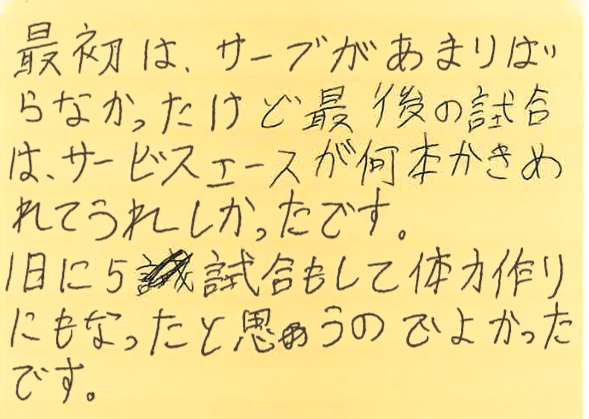 最初は、サーブがあまりはい
らなかったけど最後の試合
は、サービスエースが何本かきめ
れてうれしかったです。
1日に5試合もして体力作り
にもなったと思うのでよかった
です。